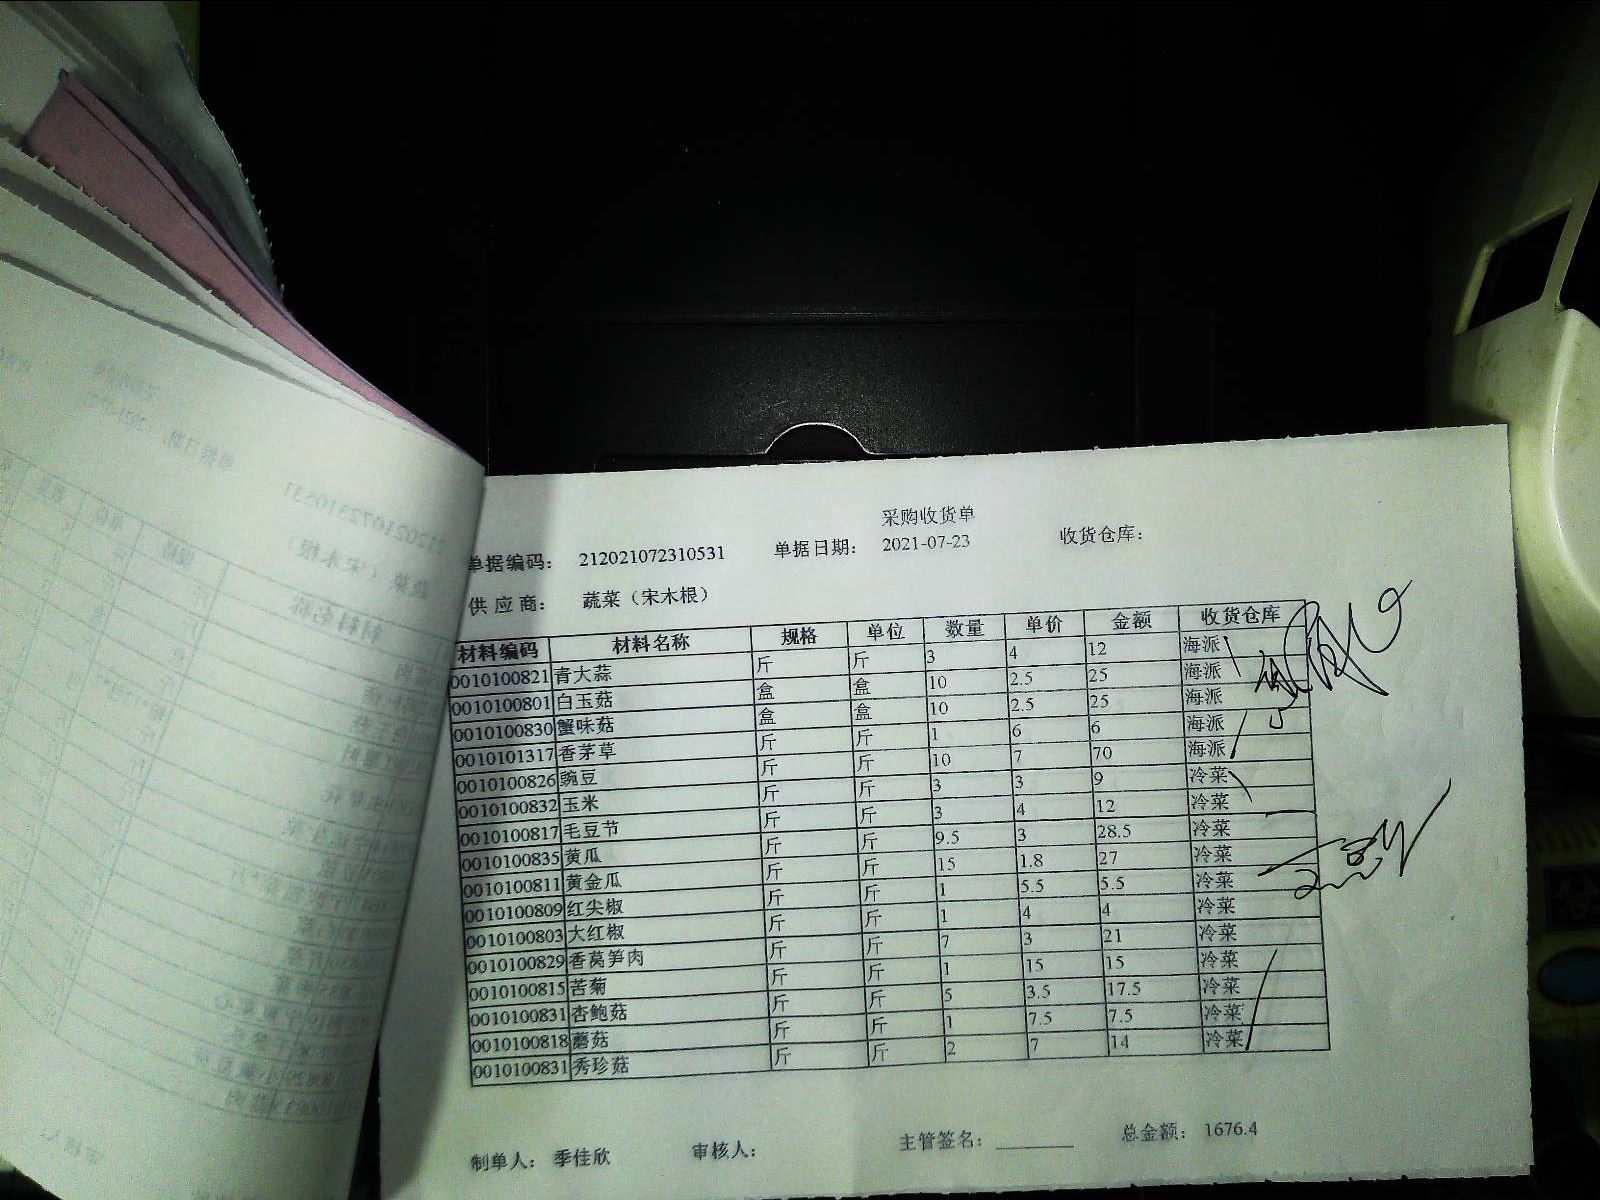 采购收货单
单据编码： 212021072310531 单据日期： 2021-07-23 收货仓库：
供应商： 蔬菜（宋木根）
材料编码 材料名称 规格 单位 数量 单价 金额 收货仓库
0010100821 青大蒜 斤 斤 3 4 12 海派
0010100801 白玉菇 盒 盒 10 2.5 25 海派
0010100830 蟹味菇 盒 盒 10 2.5 25 海派
0010101317 香茅草 斤 斤 1 6 6 海派
0010100826 豌豆 斤 斤 10 7 70 海派
0010100832 玉米 斤 斤 3 3 9 冷菜
0010100817 毛豆节 斤 斤 3 4 12 冷菜
0010100835 黄瓜 斤 斤 9.5 3 28.5 冷菜
0010100811 黄金瓜 斤 斤 15 1.8 27 冷菜
0010100809 红尖椒 斤 斤 1 5.5 5.5 冷菜
0010100803 大红椒 斤 斤 1 4 4 冷菜
0010100829 香莴笋肉 斤 斤 7 3 21 冷菜
0010100815 苦菊 斤 斤 1 15 15 冷菜
0010100831 杏鲍菇 斤 斤 5 3.5 17.5 冷菜
0010100818 蘑菇 斤 斤 1 7.5 7.5 冷菜
0010100831 秀珍菇 斤 斤 2 7 14 冷菜
制单人： 季佳欣 审核人： 主管签名： 总金额： 1676.4